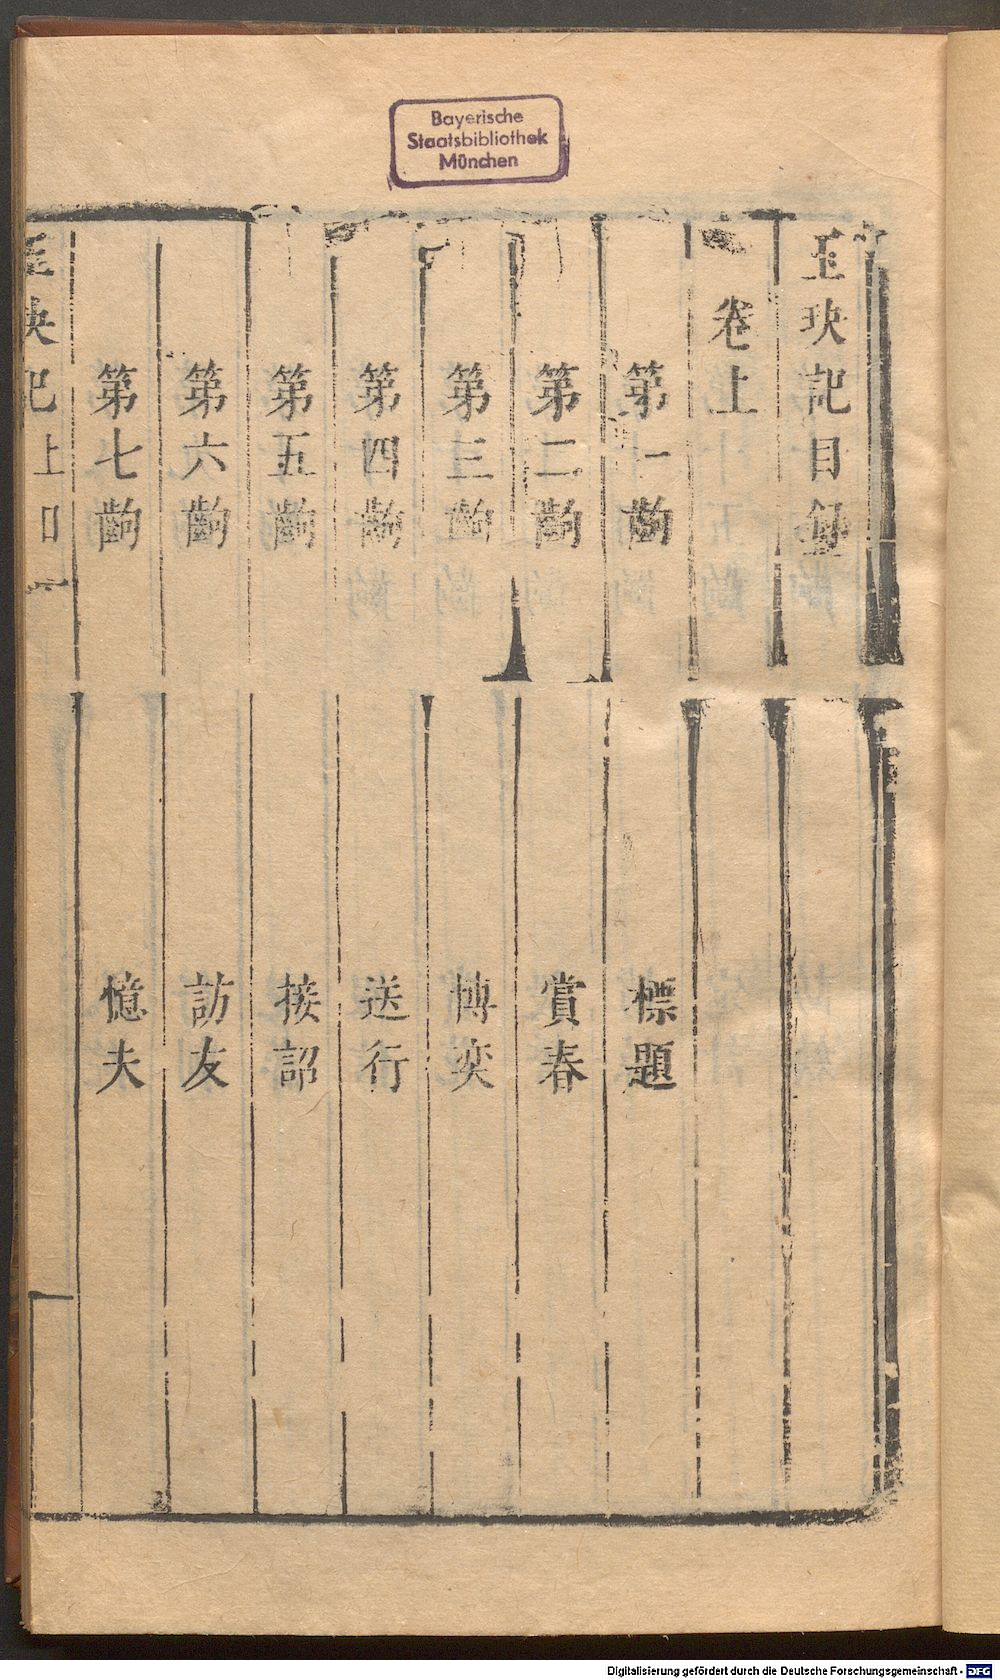 Bayerische
Staatsbibliothek
München
玉玦記目録
卷上
第一齣 標題
第二齣 賞春
第三齣 博奕
第四齣 送行
第五齣 接詔
第六齣 訪友
第七齣 憶夫
玉玦記上
Digitalisierung gefördert durch die Deutsche Forschungsgemeinschaft - DFG